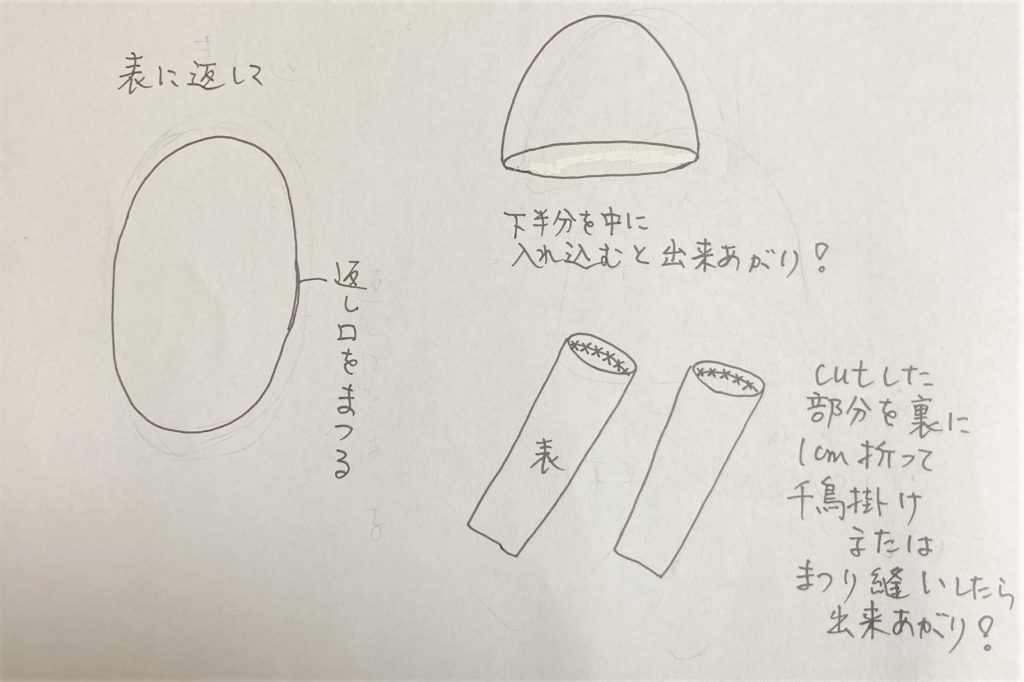 表に返して
返し口をまつる
下半分を中に
入れ込むと出来あがり!
表
cutした
部分を裏に
1cm折って
千鳥掛け
または
まつり縫いしたら
出来あがり!